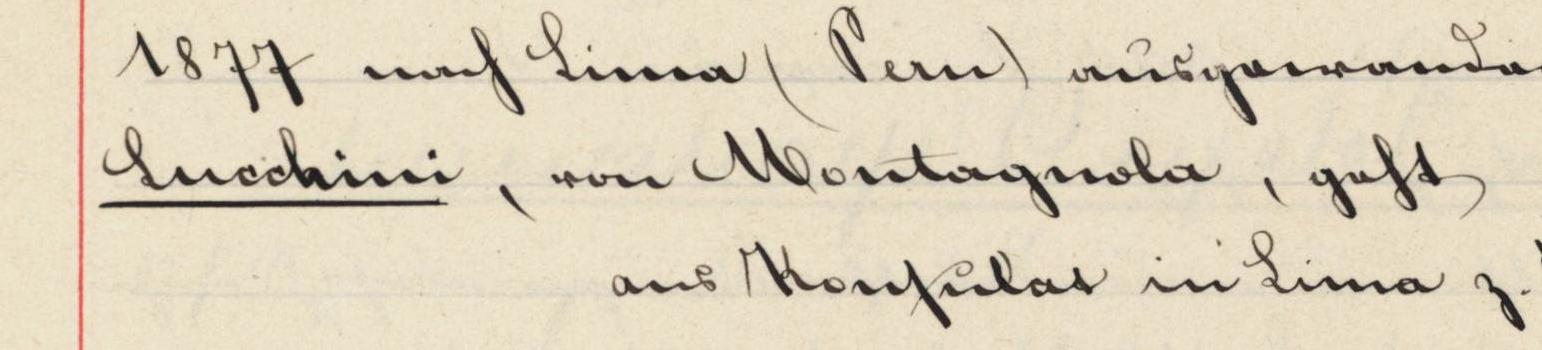 1877 nach Lima (Peru) ausgewande
Lucchini, von Montagnola, geht
ans Konsulat in Lima z.